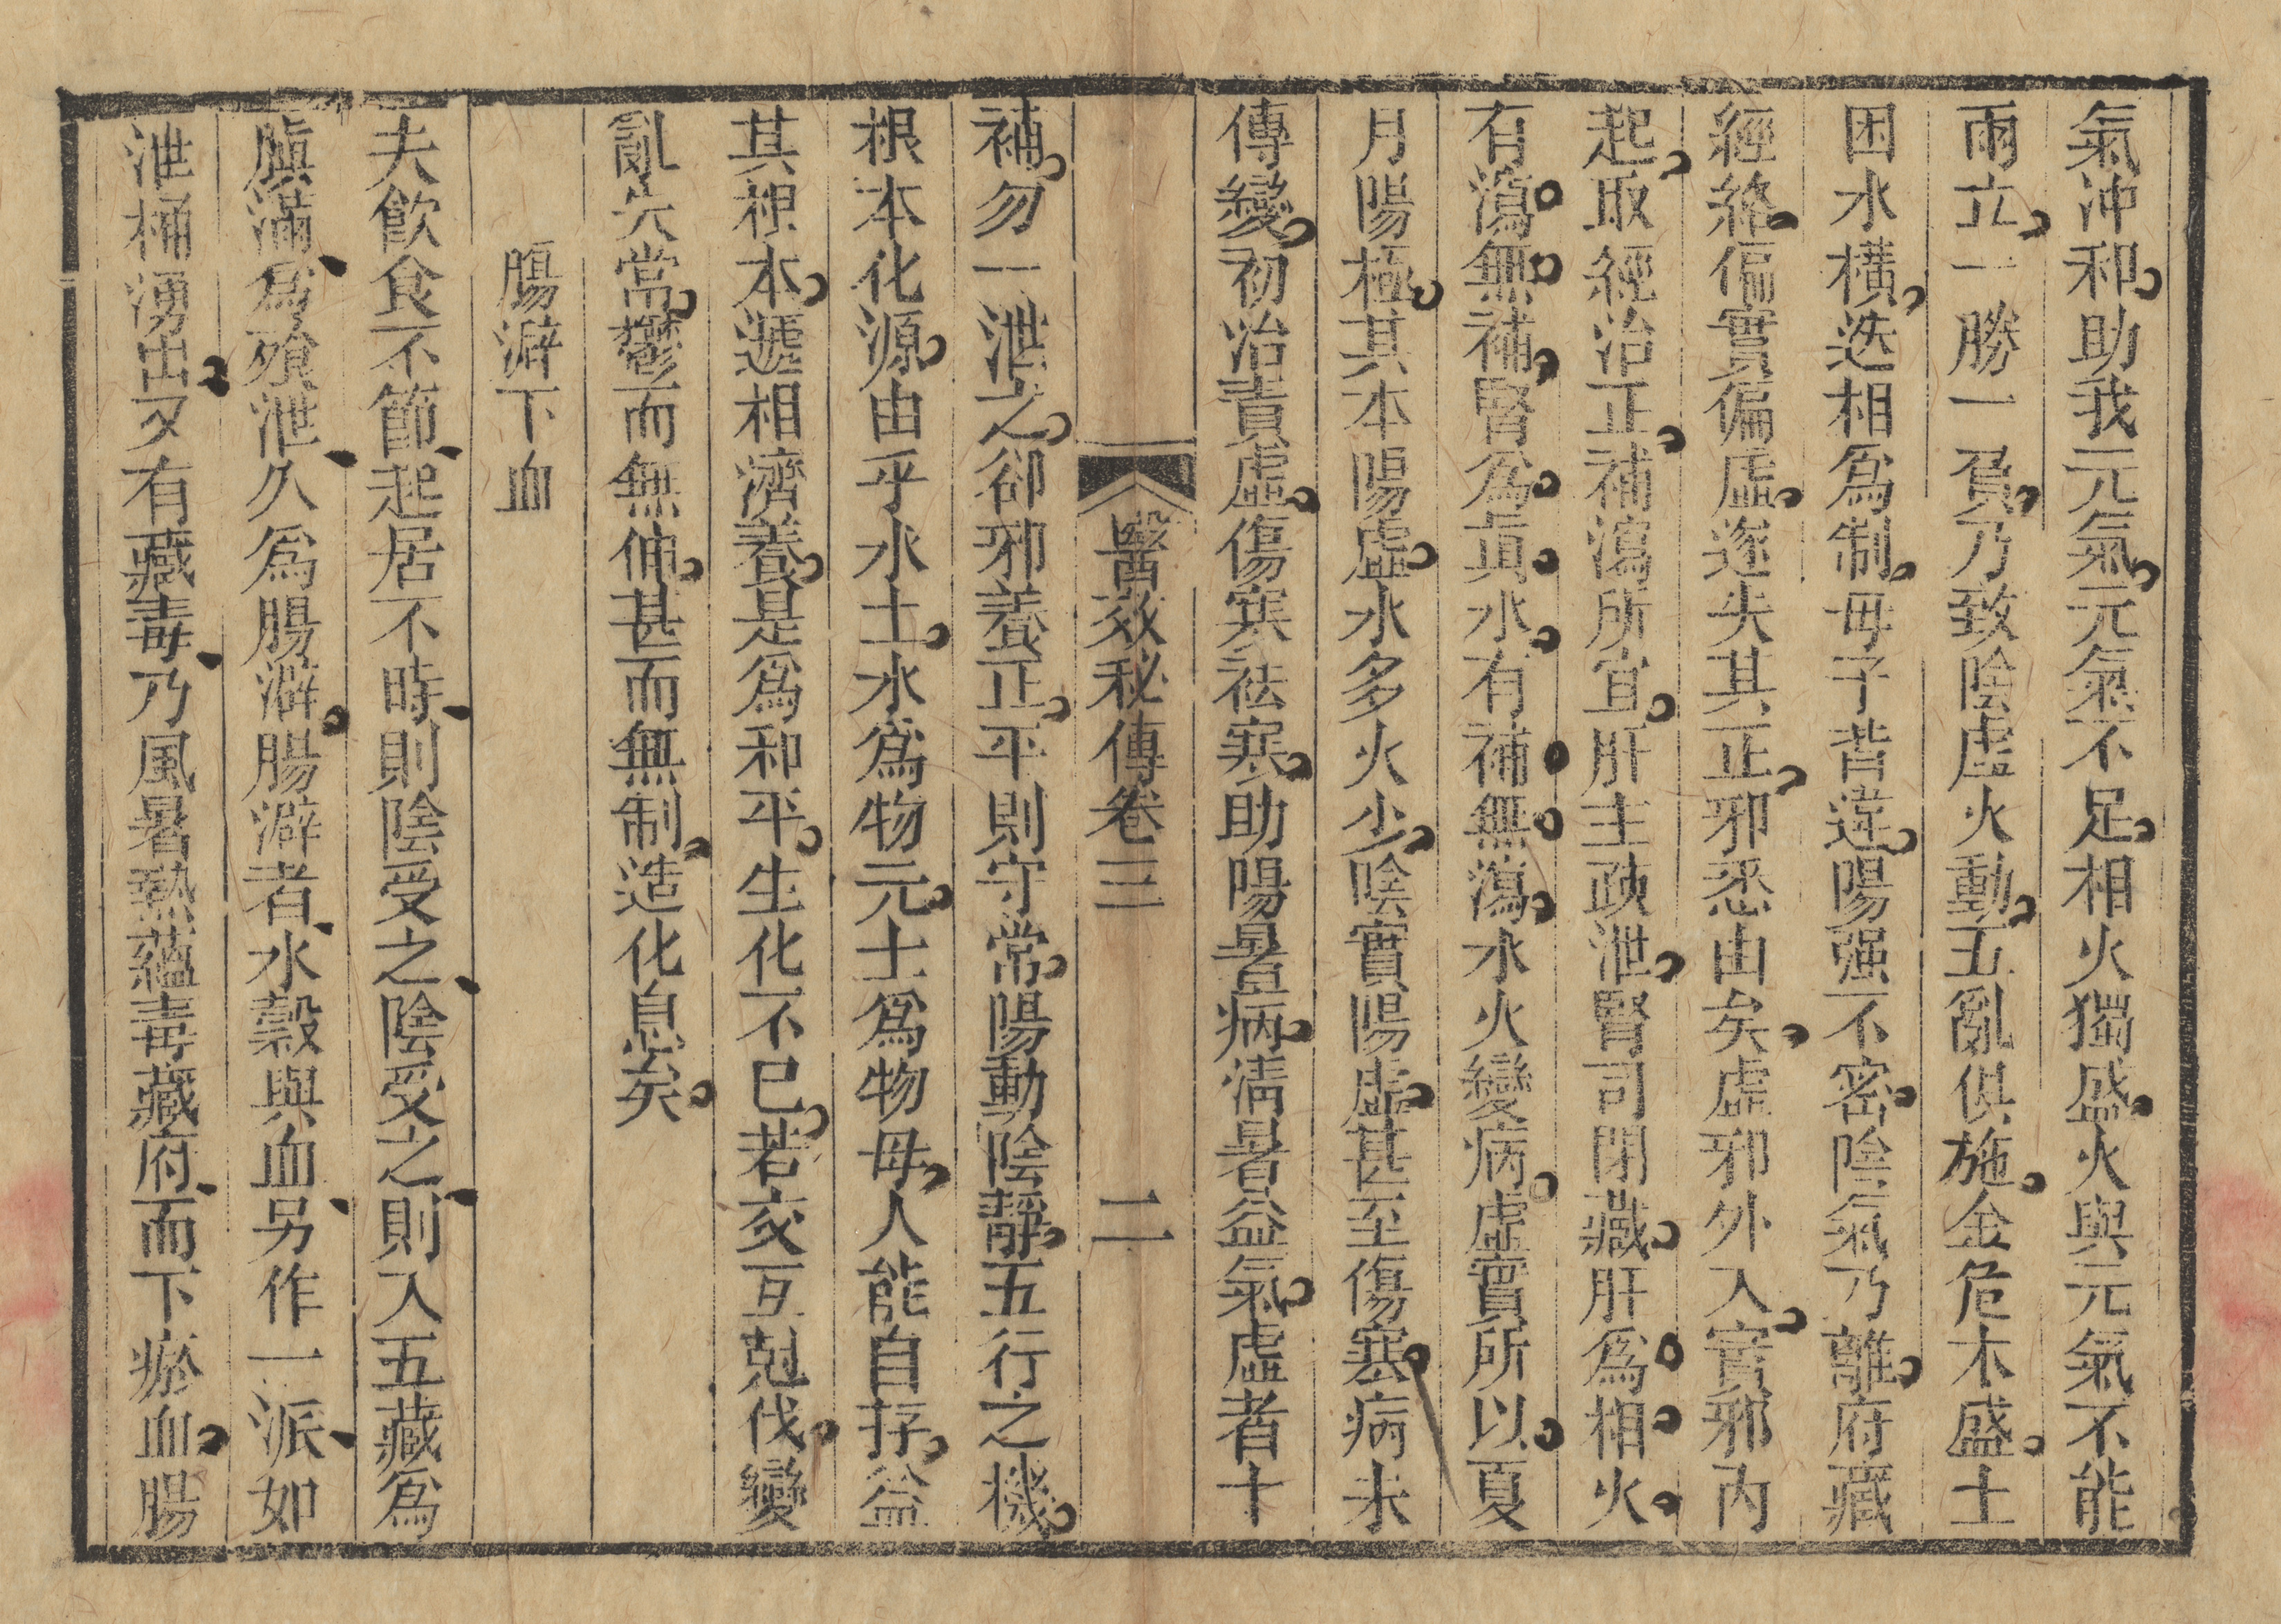 氣沖和助我元氣元氣不足相火獨盛火與元氣不能
兩立一勝一負乃致陰虛火動五亂俱施金危木盛土
困水橫迭相爲制母子昔違陽强不密陰氣乃離府藏
經絡偏實偏虛遂失其正邪悉由矣虛邪外入實邪內
起取經治正補瀉所宜肝主疎泄腎司閉藏肝爲相火
有瀉無補腎爲眞水有補無瀉水火變病虛實所以夏
月陽極其本陽虛水多火少陰實陽虛甚至傷寒病未
傳變初治責虛傷寒祛寒助陽暑病淸暑益氣虛者十
醫效秘傳卷三　二
補勿一泄之卻邪養正平則守常陽動陰靜五行之機
根本化源由乎水土水爲物元土爲物母人能自存益
其根本遞相濟養是爲和平生化不已若亥互尅伐變
亂失常鬱而無伸甚而無制造化息矣
腸澼下血
夫飮食不節起居不時則陰受之陰受之則入五藏爲
䐜滿爲飱泄久爲腸澼腸澼者水穀與血另作一派如
泄桶湧出又有藏毒乃風暑熱蘊毒藏府而下瘀血腸